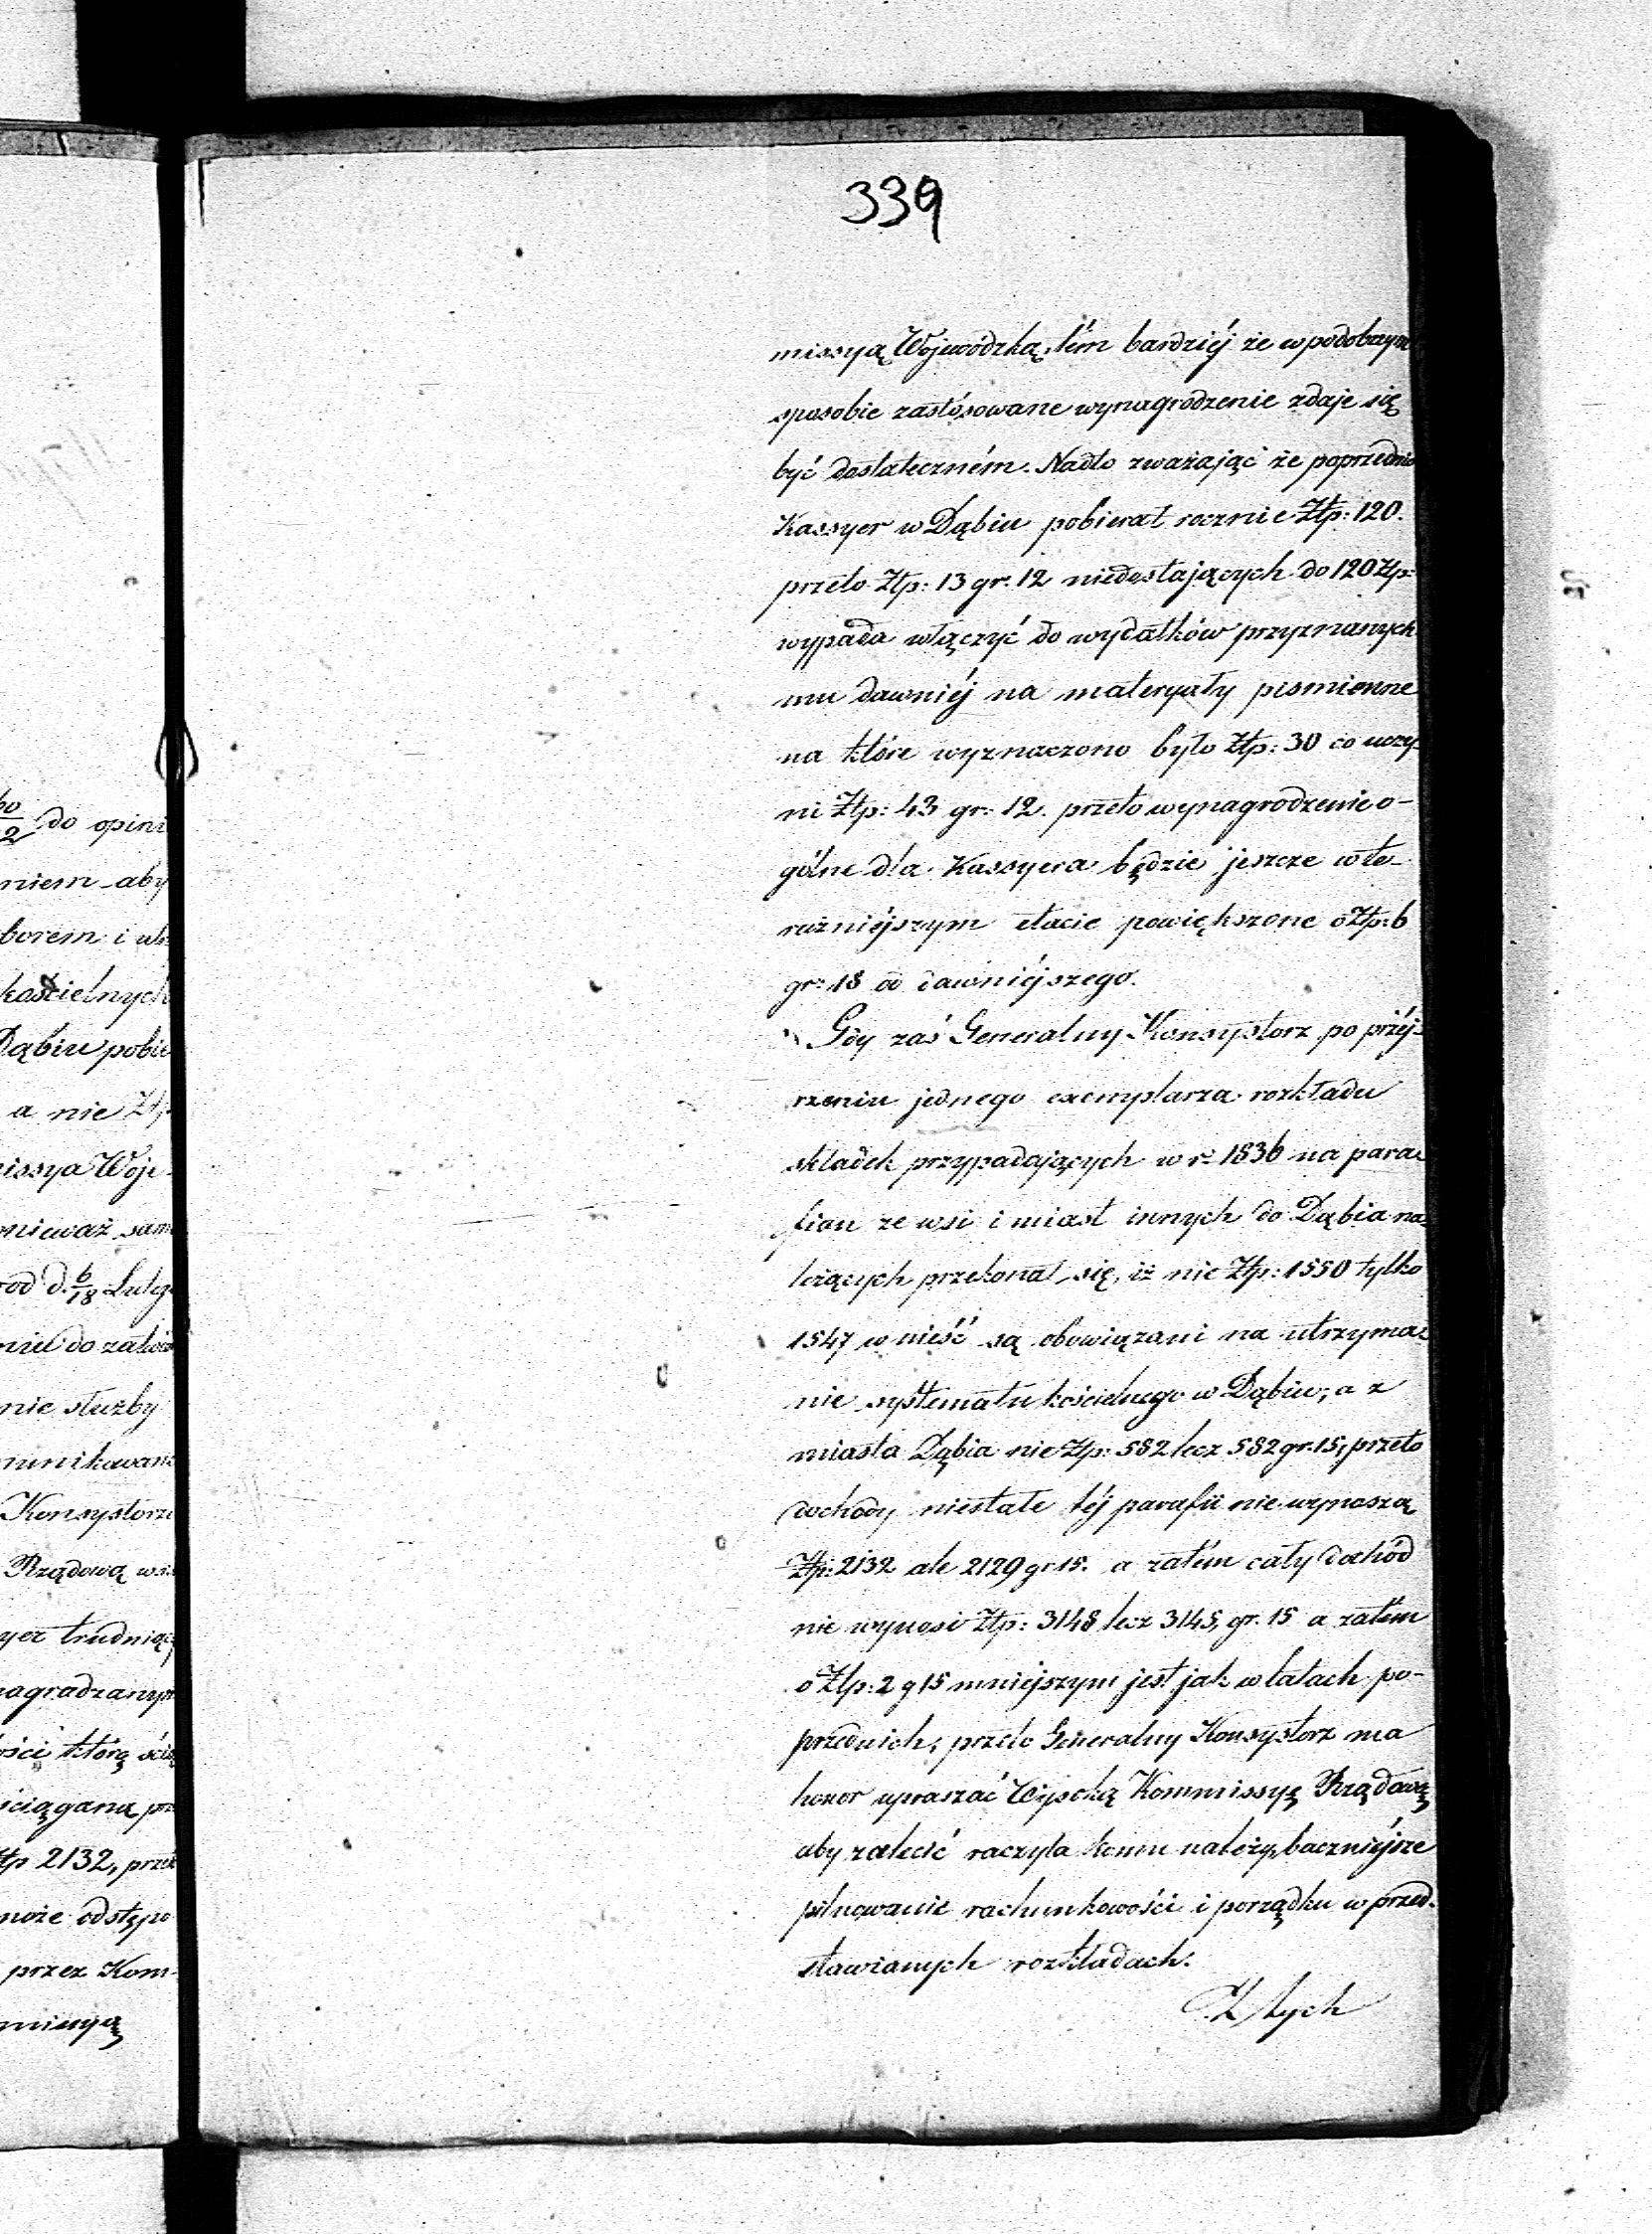 339
missyą Wojewódzką, tém bardziéj że w podobnym
sposobie zastósowane wynagrodzenie zdaje się
być dostateczném. Nadto zważając że poprzednio
Kassyer w Dąbiu pobierał rocznie Złp: 120.
przeto Złp: 13 gr. 12 niedostających do 120 Złp:
wypada włączyć do wydatków przyznanych
mu dawniéj na materyały pismienne
na które wyznaczono było Złp: 30 co uczy-
ni Złp: 43 gr: 12. przeto wynagrodzenie o-
gólne dla Kassyera będzie jeszcze w te-
raźniéjszym etacie powiększone o Złp: 6
gr: 18 od dawniéjszego.
Gdy zaś Generalny Konsystorz po przéj-
rzeniu jednego exemplarza rozkładu
składek przypadających w r. 1836 na para-
fian ze wsi i miast innych do Dąbia na-
leżących przekonał się, iż nie Złp: 1550 tylko
1547 w nieść są obowiązani na utrzyma-
nie systematu kościelnego w Dąbiu, a z
miasta Dąbia nie Złp: 582 lecz 582 gr. 15, przeto
dochody niestałe téj parafii nie wynoszą
Złp: 2132 ale 2129 gr 15. a zatém cały dochód
nie wynosi Złp: 3148 lecz 3145, gr. 15 a zatém
o Złp: 2 g 15 mniejszym jest jak w latach po-
przednich, przeto Generalny Konsystorz ma
honor upraszać Wysoką Kommissyę Rządową
aby zalecić raczyła komu należy, baczniéjsze
pilnowanie rachunkowości i porządku w przed-
stawianych rozkładach.
Z tych
do opini
niem aby
borem i
kościelnych
Dąbiu pobie
a nie Złp
issya Woje-
nieważ sam
od d. 6/18 Luteg
nie służby
Konsystorz
Rządową
yer trudniąc
agradzanym
ości którą
iciągana
łp 2132,
może odstąpo
przez Kom-
missyą